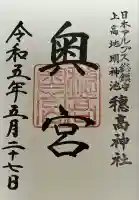 日本アルプス総鎮守
上高地明神池
穂高神社
奥宮
令和五年五月二十七日